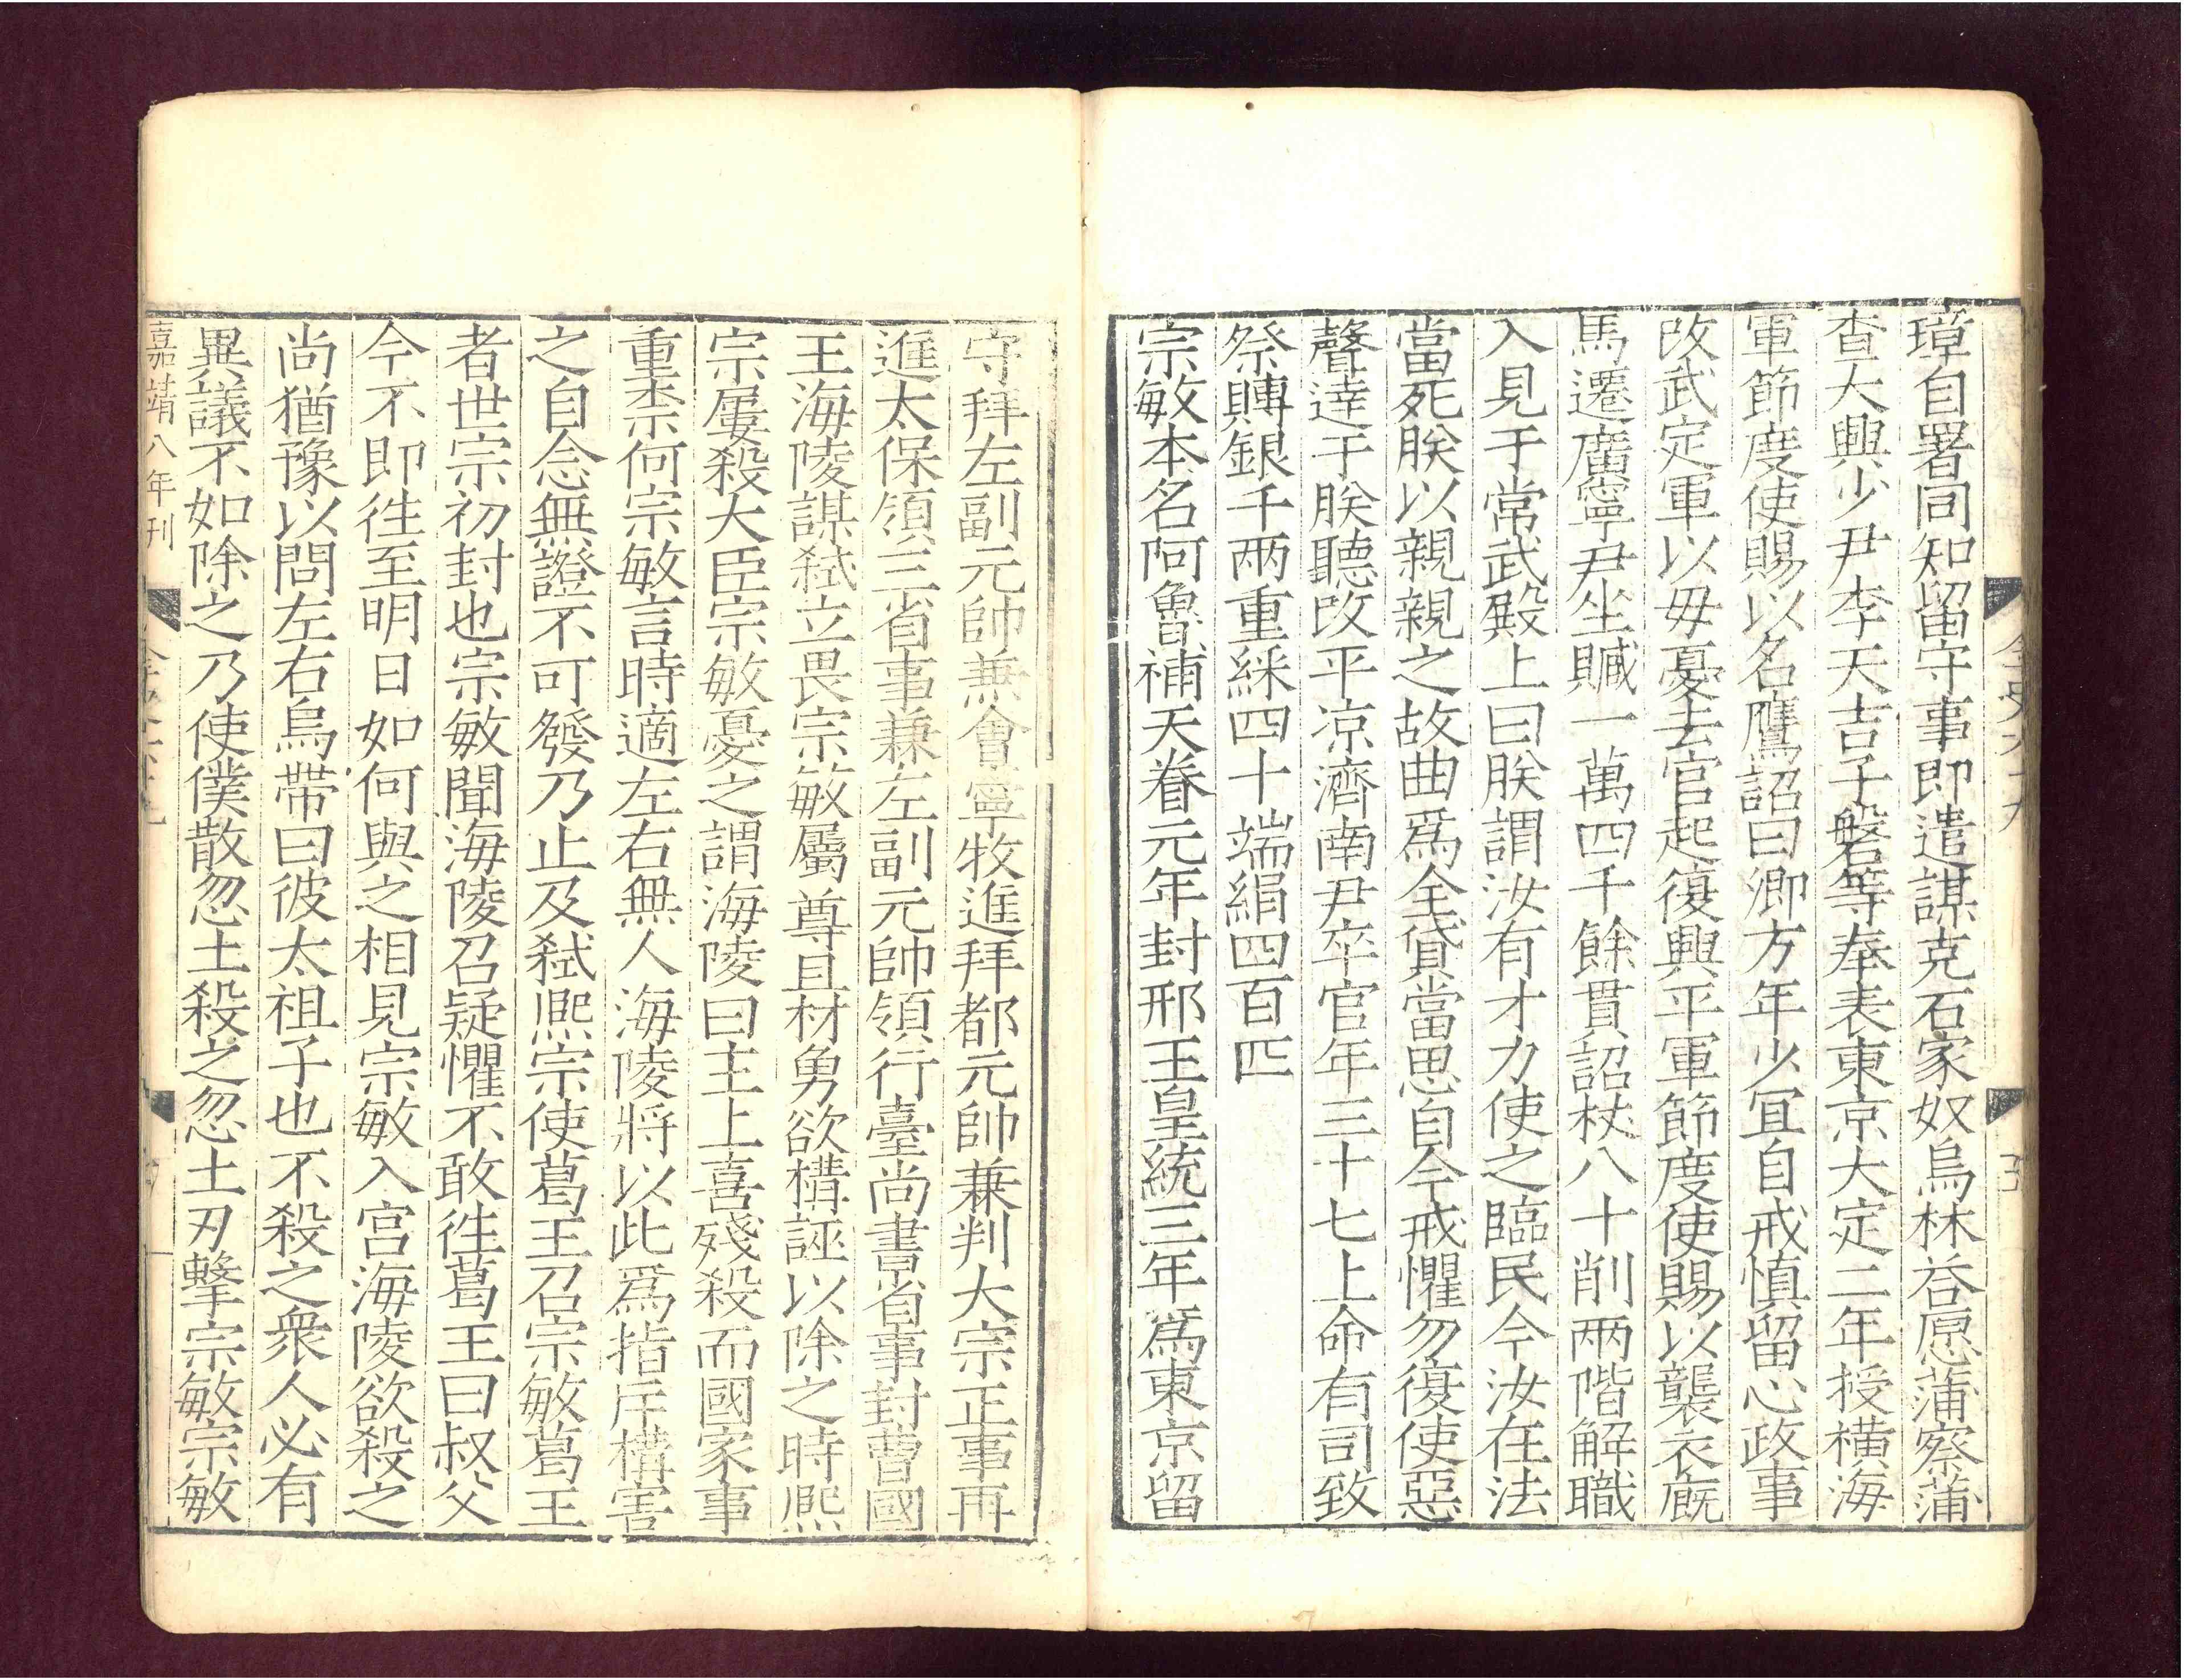 璋自署同知留守事即遣謀克石家奴烏林荅愿蒲察蒲
查大興少尹李天吉子磐等奉表東京大定二年授橫海
軍節度使賜以名鷹詔曰卿方年少冝自戒慎留心政事
改武定軍以毋憂去官起復興平軍節度使賜以襲衣廐
馬遷廣寧尹坐贓一萬四千餘貫詔杖八十削兩階解職
入見于常武殿上曰朕謂汝有才力使之臨民今汝在法
當死朕以親親之故曲爲全貸當思自今戒懼勿復使惡
聲達于朕聽改平凉濟南尹卒官年三十七上命有司致
祭賻銀千兩重綵四十端絹四百匹
宗敏本名阿魯補天眷元年封邢王皇統三年爲東京留
守拜左副元帥兼會寧牧進拜都元帥兼判大宗正事再
進太保領三省事兼左副元帥領行臺尚書省事封曹國
王海陵謀弑立畏宗敏屬尊且材勇欲構誣以除之時熙
宗屢殺大臣宗敏憂之謂海陵曰主上喜殘殺而國家事
重柰何宗敏言時適左右無人海陵將以此爲指斥構害
之自念無證不可發乃止及弑熙宗使葛王召宗敏葛王
者世宗初封也宗敏聞海陵召疑懼不敢徃葛王曰叔父
今不即徃至明日如何與之相見宗敏入宫海陵欲殺之
尚猶豫以問左右烏帶曰彼太祖子也不殺之衆人必有
異議不如除之乃使僕散忽土殺之忽土刃擊宗敏宗敏
嘉靖八年刊